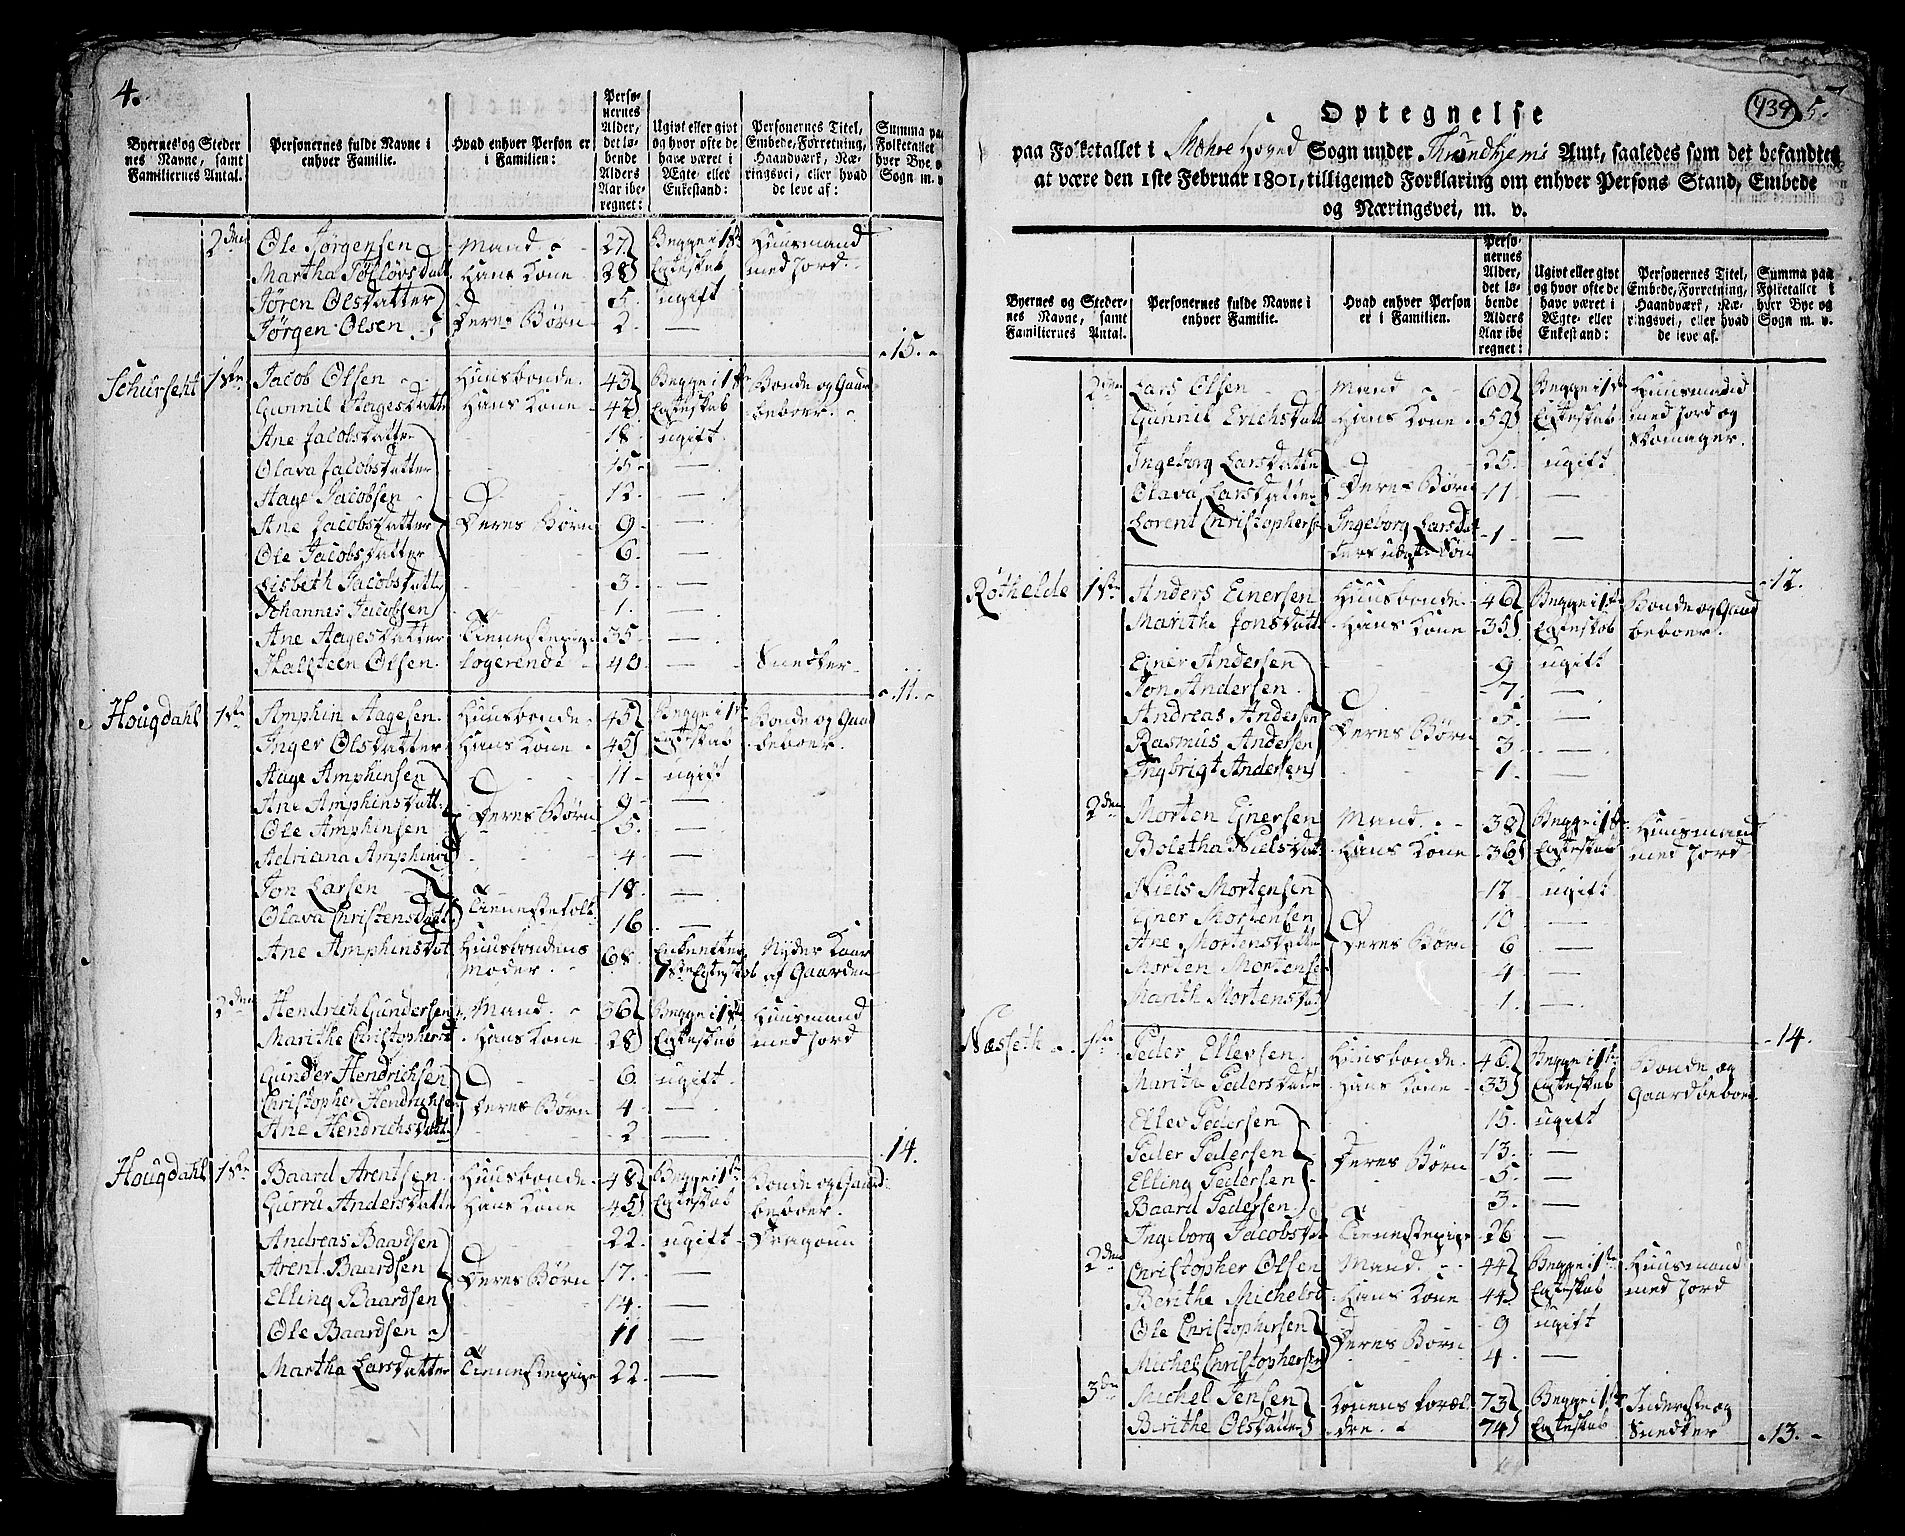 4.
Byernes og Steder
nes Navne, samt
Familiernes Antal.
Personernes fulde Navne i
enhver Familie.
Hvad enhver Person er
i Familien:
Perso-
nernes
Alder,
det lø-
bende
Alders
Aar ibe-
regnet:
Ugivt eller givt
og hvor ofte de
have været i
Ægte- eller
Enkestand:
Personernes Titel,
Embede, Forretning,
Haandværk, Næ-
ringsvei, eller hvad
de leve af:
Summa paa
Folketallet
hver Bye o
Sogn m. v.
2den Ole Jørgensen Mand 27 Begge i 1ste Huusmand
Hans Kone 28 Egteskab med Jord
Jøren Olsdatter 5 ugift
Jørgen Olsen Deres Børn 2 —
15.
Schürseht 1ste Jacob Olsen Huusbonde 43 Begge i 1ste Bonde og Gaard
Gunnil Aagesdatt Hans Kone 42 Egteskab beboer
Ane Jacobsdatter 18 ugift
Olava Jacobsdatter 15 —
Aage Jacobsen 12 —
Ane Jacobsdatter Deres Børn 9 —
Ole Jacobsdatter 6 —
Lisbeth Jacobsdatte 3 —
Johannes Jacobsen 1 —
Ane Aagesdatter Tienestepige 35 —
Halsteen Olsen logerende 40 — Snecker
11.
Hougdahl 1ste Amphin Aagesen Huusbonde 45 Begge i 1ste Bonde og Gaard
Inger Olsdatter Hans Kone 45 Egteskab beboer
Aage Amphinsen 11 ugift
Ane Amphinsdatt. Deres Børn 9 —
Ole Amphinsen 5 —
Adriana Amphinsd 4 —
Jon Larsen 18 —
Olava Christensdatt Tienestefolk 16 —
Ane Amphinsdat Huusbondens 68 Enke efter Nyder Kaar
Moder 1ste Egteskab af Gaarden
2den Hendrich Gundersen Mand 36 Begge i 1ste Huusmand
Marithe Christophersd Hans Kone 28 Egteskab med Jord
Gunder Hendrichsen 6 ugift
Christopher Hendrichsen Deres Børn 4 —
Ane Hendrichsdatt 2 —
14.
Hougdahl 1ste Baard Arentsen Huusbonde 48 Begge i 1ste Bonde og Gaard
Gurru Andersdatte Hans Kone 45 Egteskab beboer
Andreas Baardsen 22 ugift Dragoun
Arent Baardsen Deres Børn 17 —
Elling Baardsen 14 —
Ole Baardsen 11 —
Martha Larsdatter Tienestepige 22 —
439 5.
Optegnelse
paa Folketallet i Mohre Hoved Sogn under Thrundhjems Amt, saaledes som det befandtes
at være den 1ste Februar 1801, tilligemed Forklaring om enhver Persons Stand, Embede
og Næringsvei, m. v.
Byernes og Steder-
nes Navne, samt
Familiernes Antal.
Personernes fulde Navne i
enhver Familie.
Hvad enhver Person
er i Familien.
Perso-
nernes
Alder,
det lø-
bende
Alders
Aar ibe
regnet:
Ugivt eller givt
og hvor ofte de
have været i
Ægte- eller
Enkestand:
Personernes Titel,
Embede, Forretning,
Haandværk, Næ-
ringsvei, eller hvad
de leve af.
Summa paa
Folketallet i
hver Bye og
Sogn m. v.
2den Lars Olsen Mand 60 Begge i 1ste Huusmand
Gunnil Erichsdatt Hans Kone 59 Egteskab med Jord og
Skomager.
Ingeborg Larsdatte 25 ugift
Olava Larsdatter Deres Børn 11 —
Lorent Christopherse Ingeborg Larsdat 1 —
ters uægte Søn
12.
Røthelde 1ste Anders Einersen Huusbonde 46 Begge i 1ste Bonde og Gaard
Marithe Jonsdatt Hans Kone 35 Egteskab beboer
Ejner Andersen 9 ugift
Jon Andersen 7 —
Andreas Andersen 5 —
Rasmus Andersen Deres Børn 3 —
Ingbrigt Andersen 1 —
2den Morten Ejnersen Mand 38 Begge i 1ste Huusmand
Boletha Nielsdatt Hans Kone 36 Egteskab med Jord
Niels Mortensen 12 ugift
Ejner Mortensen 10 —
Ane Mortensdatte Deres Børn 6 —
Morten Mortense 4 —
Marith Mortensdat 1 —
14.
Næsseth 1ste Peder Ellevsen Huusbonde 46 Begge i 1ste Bonde og
Marith Pedersdatte Hans Kone 33 Egteskab Gaardbeboer
Ellev Pedersen 15 ugift
Peder Pedersen Deres Børn 13 —
Elling Pedersen 5 —
Baard Pedersen 3 —
Ingeborg Jacobsdat Tienestepige 26 —
2den Christopher Olsen Mand 44 Begge i 1ste Huusmand
Berithe Michelsd Hans Kone 44 Egteskab med Jord
Ole Christophersen 9 ugift
Michel Christophersen Deres Børn 4 —
3die Michel Jensen Konens Foræl 73 Begge i 1ste Inderste og
Berithe Olsdatter dre 74 Egteskab Snedker
13.